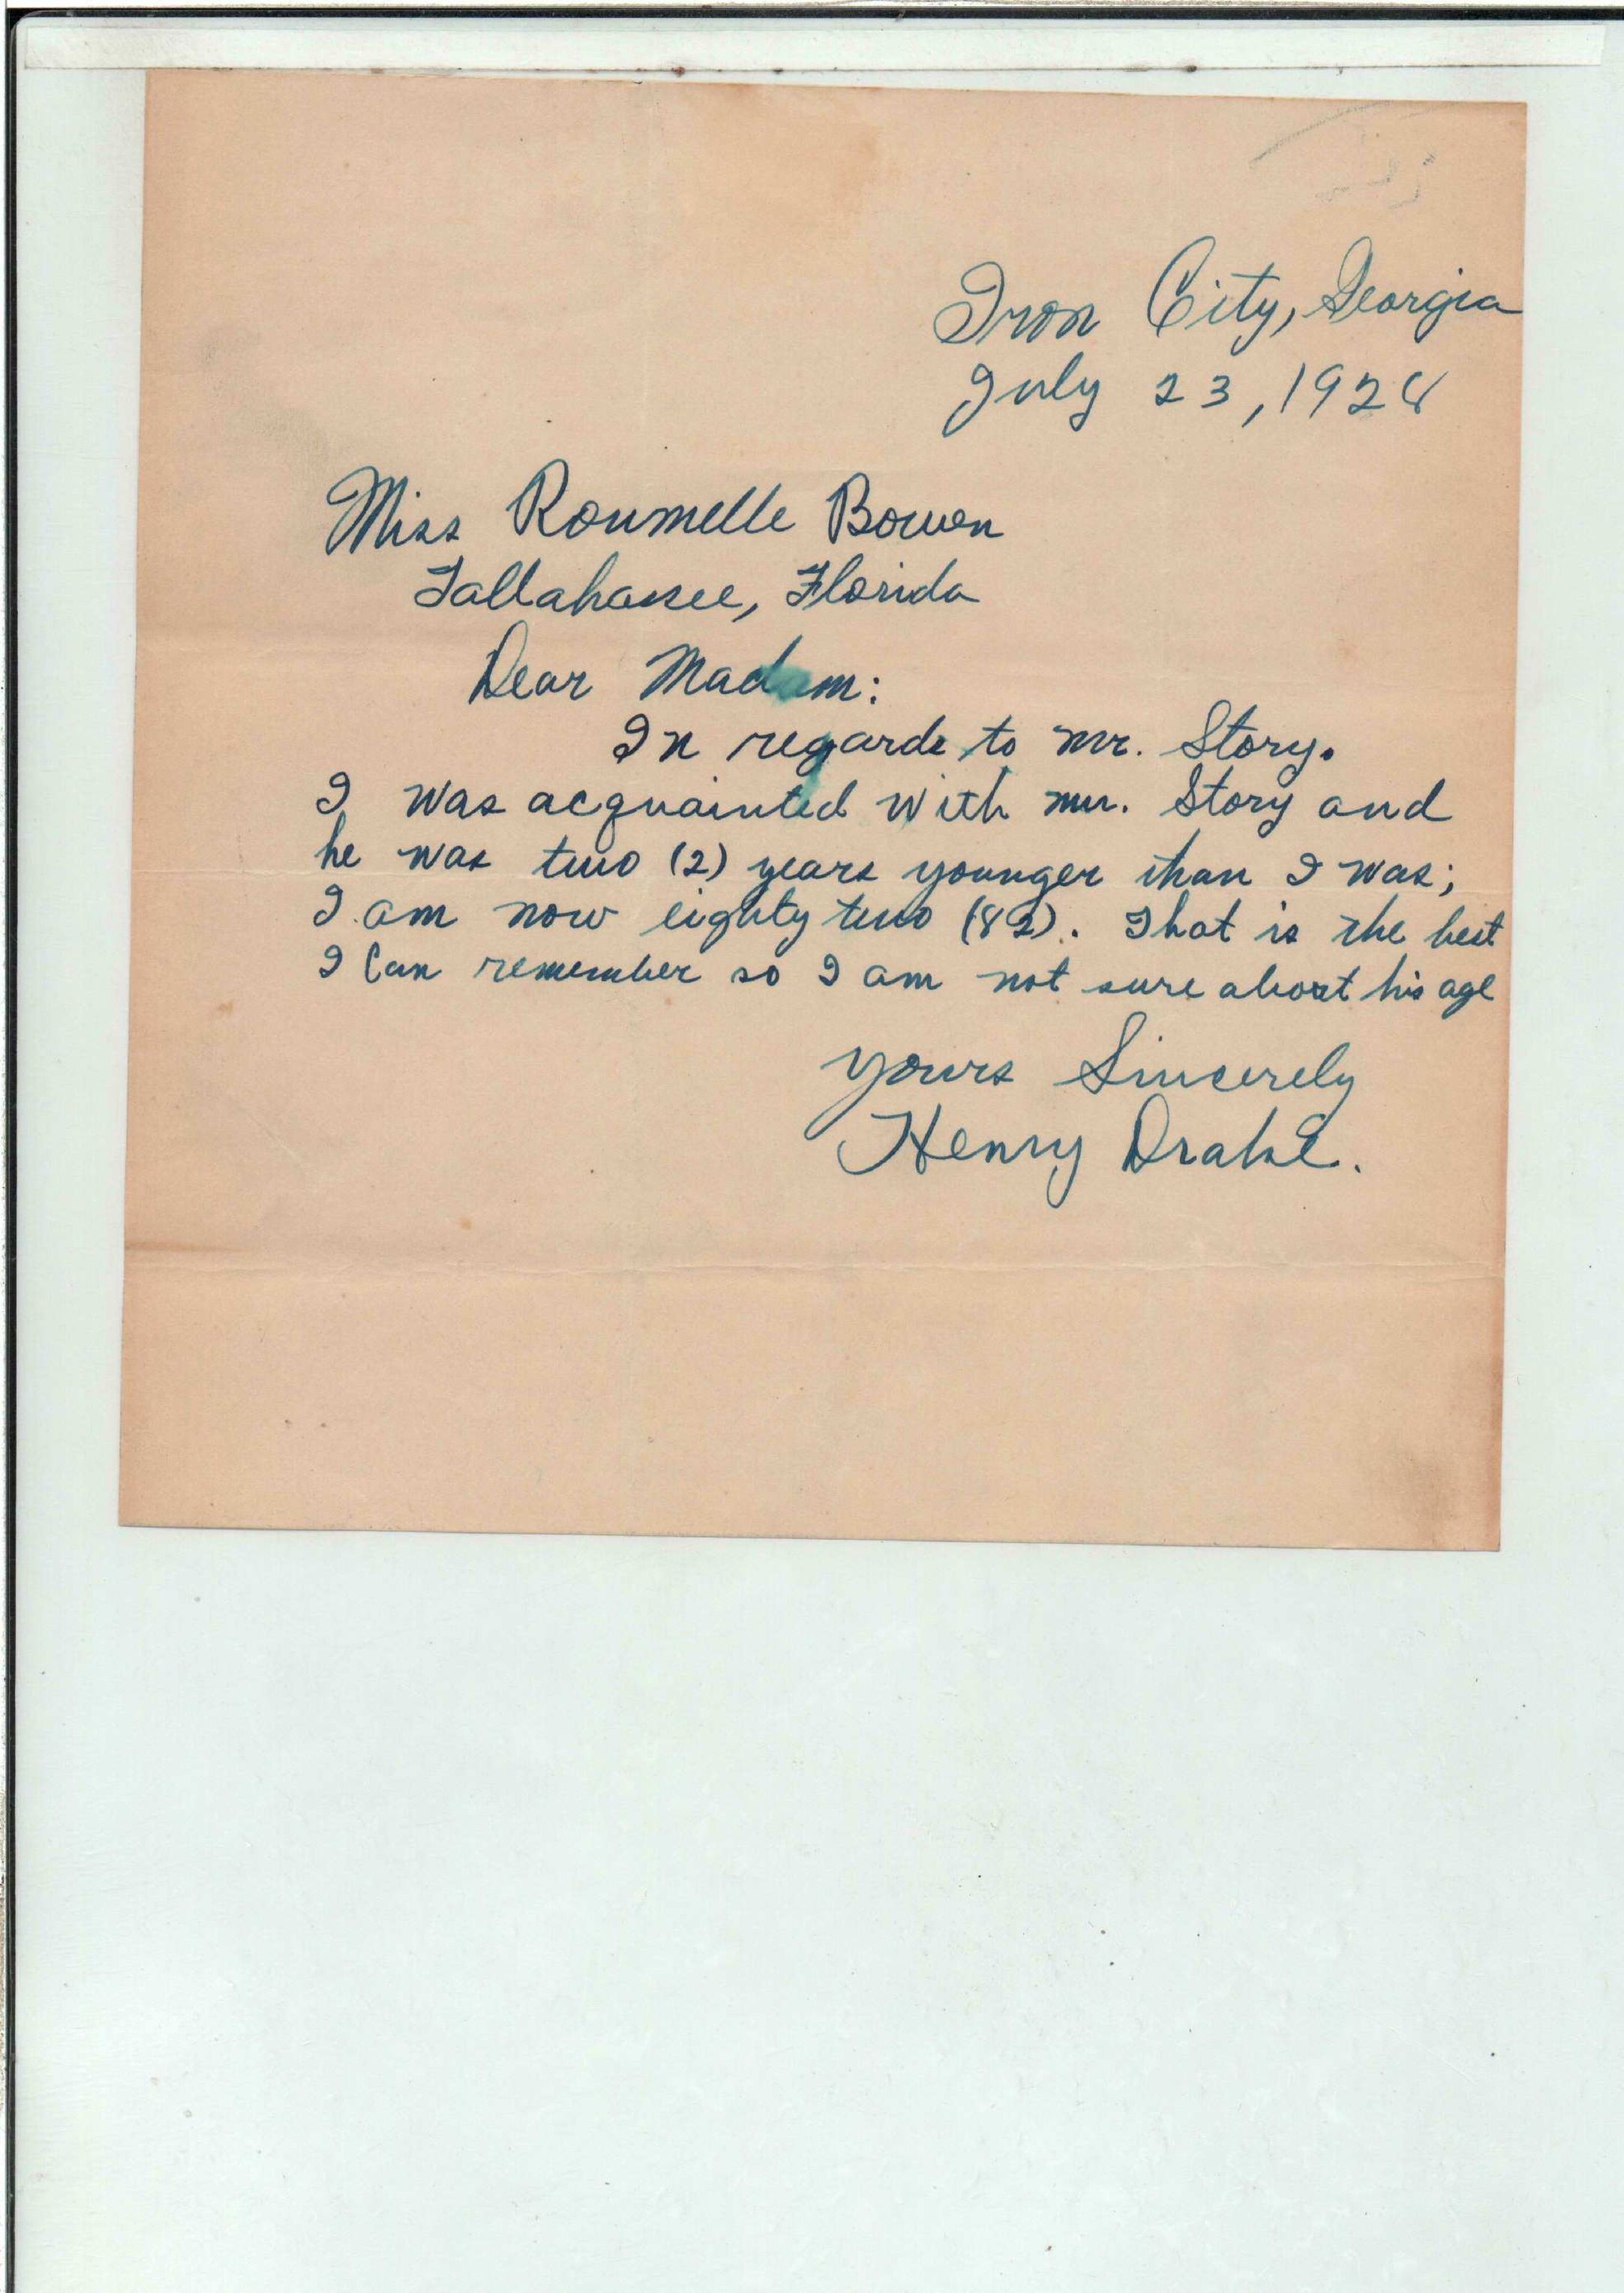 Iron City, Georgia
July 23, 1928
Miss Roumelle Bowen
Tallahassee, Florida
Dear Madam:
In regards to Mr. Story.
I was acquainted with Mr. Story and
he was two (2) years younger than I was;
I am now eighty two (82). That is the best
I Can remember so I am not sure about his age
Yours Sincerely
Henry Drake.